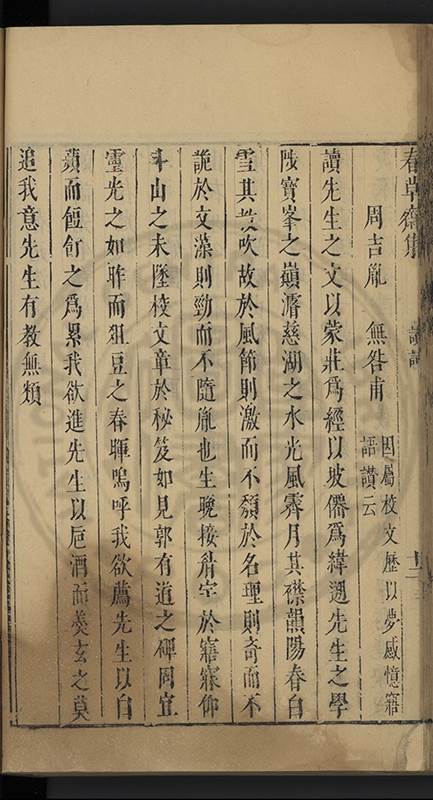 春草齋集
周吉胤 無咎甫 因屬校文歷以夢感憶寤
語讚云
讀先生之文以蒙莊爲經以坡僊爲緯遡先生之學
陟寶峯之巔溽慈湖之水光風霽月其襟韻陽春白
雪其㪚吹故於風節則激而不頹於名理則奇而不
詭於文藻則勁而不隨胤也生晚接觷宇於寤寐仰
斗山之未墜校文章於秘笈如見郭有道之碑周宜
靈光之如昨而狙豆之春暉嗚呼我欲薦先生以白
蘋而飣之爲累我欲進先生以巵酒而羮玄之莫
追我意先生有教無類